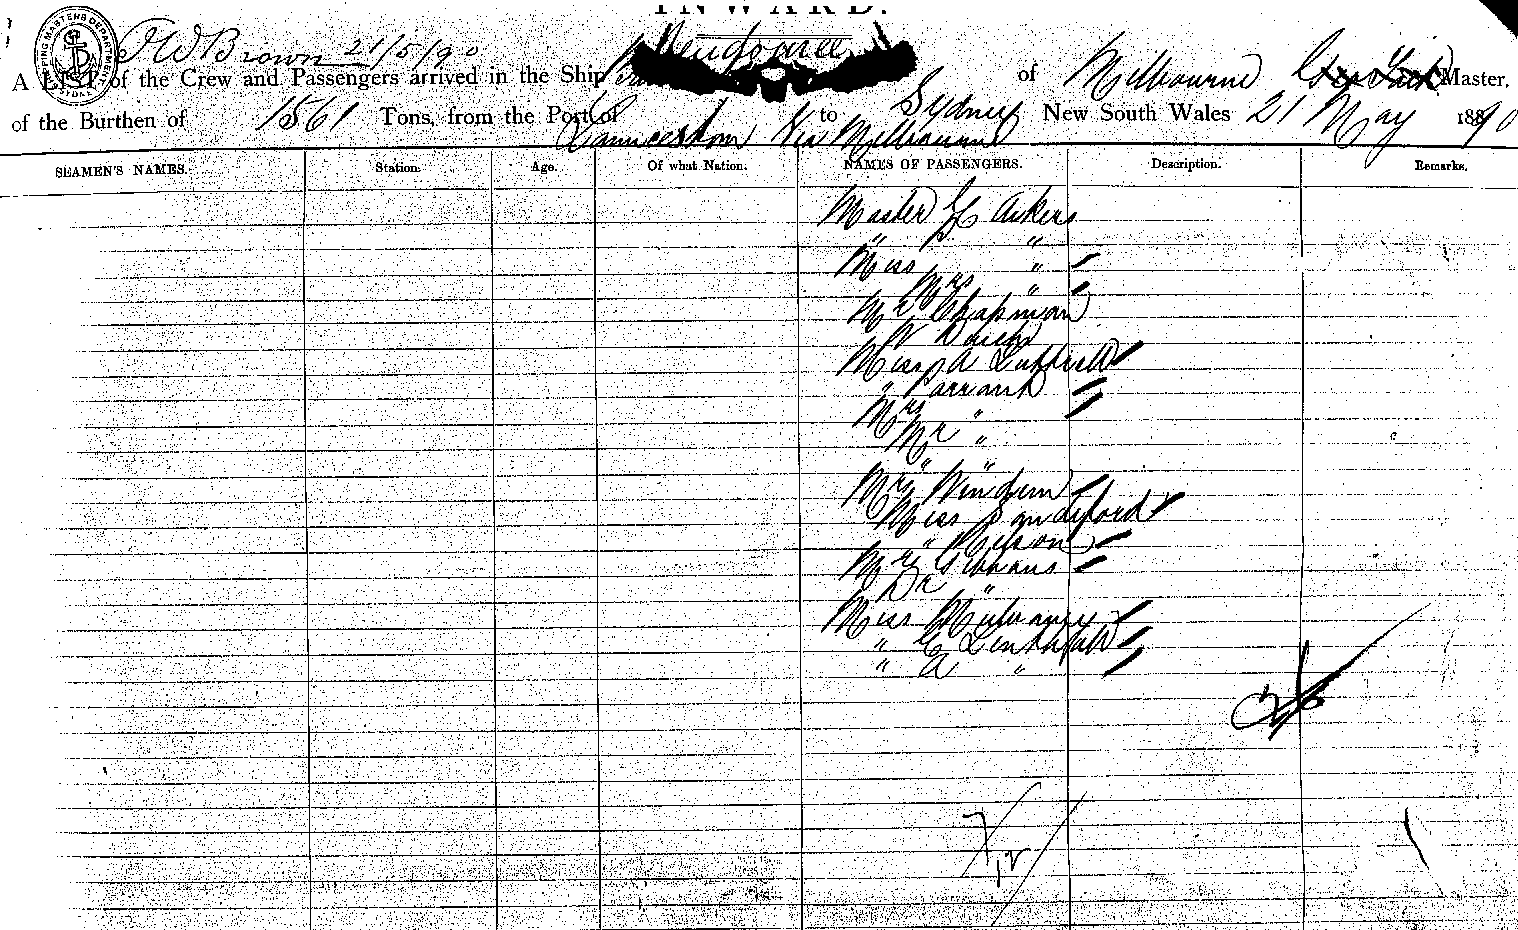 INWARD.
SHIPPING MASTERS DEPARTMENT SYDNEY
J W Brown 21/5/90
A LIST of the Crew and Passengers arrived in the Ship of Melbourne Master,
of the Burthen of 1561 Tons, from the Port of Launceston via Melbourne to Sydney New South Wales 21 May 1890
SEAMEN'S NAMES. Station. Age. Of what Nation. NAMES OF PASSENGERS. Description. Remarks.
Master Askers
" "
Miss "
Mrs "
Mr Chapman
Miss A
" Parrant
Mrs "
Mr "
" "
Mrs Windum
Miss Sandiford
" Nelson
Mrs Gibbons
Dr "
Miss Mulvaney
" E
" A "